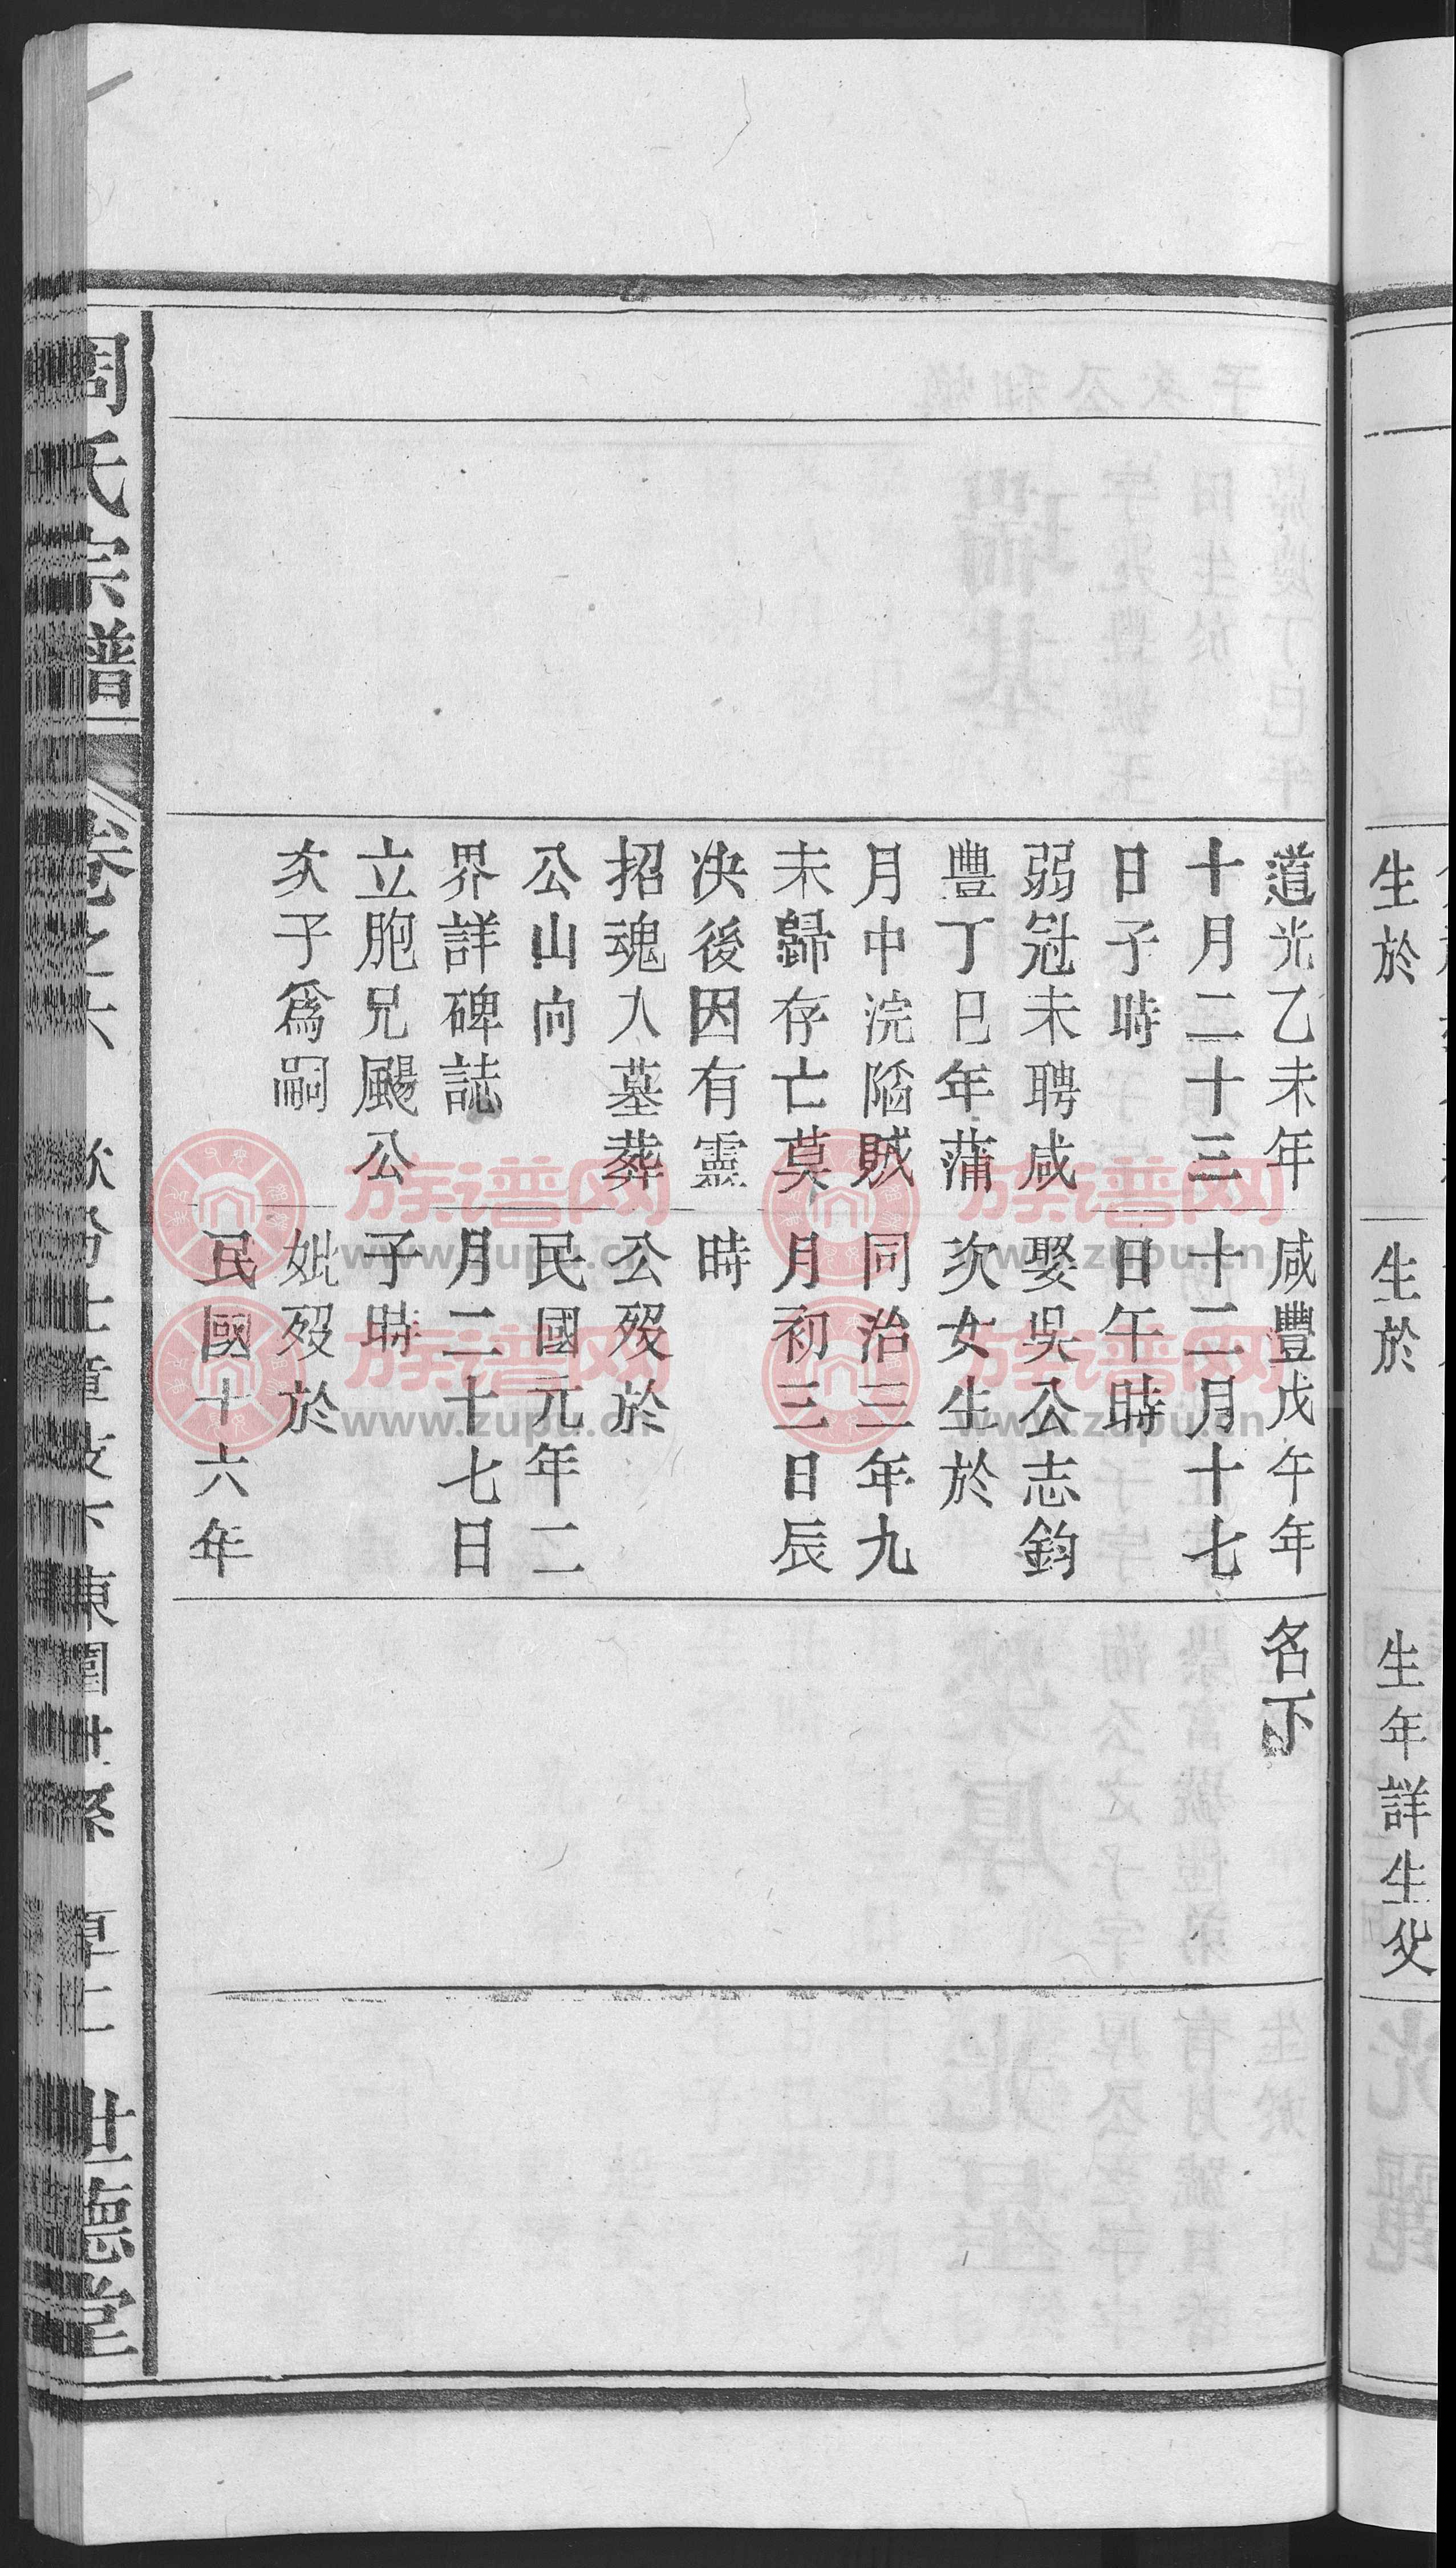 生於
生於
生年詳生父
道光乙未年
十月二十三
日子時
弱冠未聘咸
豐丁巳年蒲
月中浣陷賊
未歸存亡莫
決後因有靈
招魂入墓葬
公山向
界詳碑誌
立胞兄颺公
次子爲嗣
咸豐戊午年
十二月十七
日午時
娶吳公志鈞
次女生於
同治三年九
月初三日辰
時
公歿於
民國元年二
月二十七日
子時
妣歿於
民國十六年
名下
周氏宗譜
卷之六
東園世系
世德堂
族谱网
www.zupu.cn
族谱网
www.zupu.cn
族谱网
www.zupu.cn
族谱网
www.zupu.cn